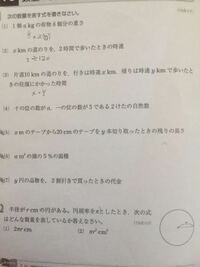 次の数量を表す式を書きなさい。
(1) 1個 a kgの荷物8個分の重さ
(2) x kmの道のりを、2時間で歩いたときの時速
(3) 片道10 kmの道のりを、行きは時速x km、帰りは時速y kmで歩いたと
きの往復にかかった時間
(4) 十の位の数がa、一の位の数が5である2けたの自然数
(5) a mのテープから20 cmのテープをy本切り取ったときの残りの長さ
(6) a m²の畑の5%の面積
(7) y円の品物を、2割引きで買ったときの代金
半径がr cmの円がある。円周率をπとしたとき、次の式
はどんな数量を表しているか答えなさい。
(1) 2πr cm (2) πr² cm²